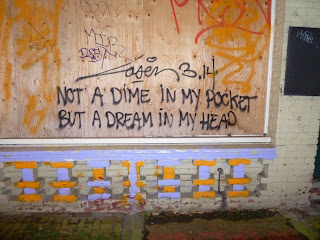 3.14
NOT A DIME IN MY POCKET
BUT A DREAM IN MY HEAD